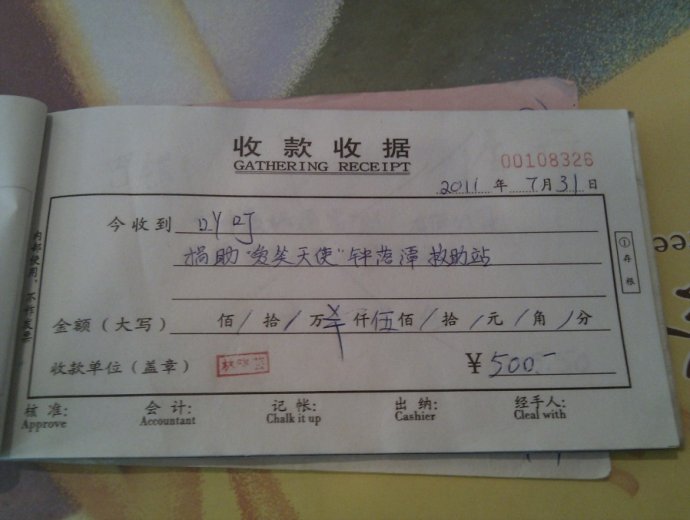 收款收据
GATHERING RECEIPT
00108326
2011 年 7 月 31 日
今收到 叭叮
捐助"爱笑天使"钟落潭救助站
金额（大写） 佰/拾/万 仟伍佰/拾/元/角/分
收款单位（盖章） ¥500.-
核准: 会计: 记帐: 出纳: 经手人:
Approve Accountant Chalk it up Cashier Cleal with
①存根
内部使用，不作发票